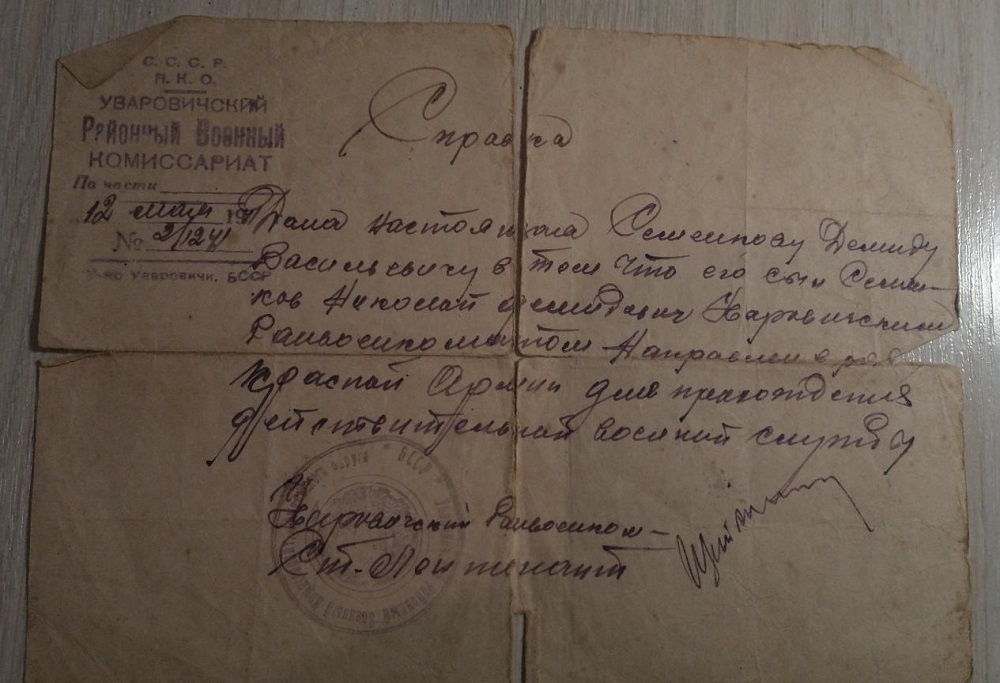 С. С. С. Р.
Н. К. О.
УВАРОВИЧСКИЙ
РАЙОННЫЙ ВОЕННЫЙ
КОМИССАРИАТ
По части
12 мая 19
№ 2/1241
Уваровичи, БССР
Справка
Дана настоящая Семенкову Демиду
Васильевичу в том что его сын Семен-
ков Николай Демидович Уваровичским
Райвоенкоматом направлен в ряды
Красной Армии для прохождения
действительной военной службы
Уваровичский Райвоенком-
Ст. Лейтенант
БССР